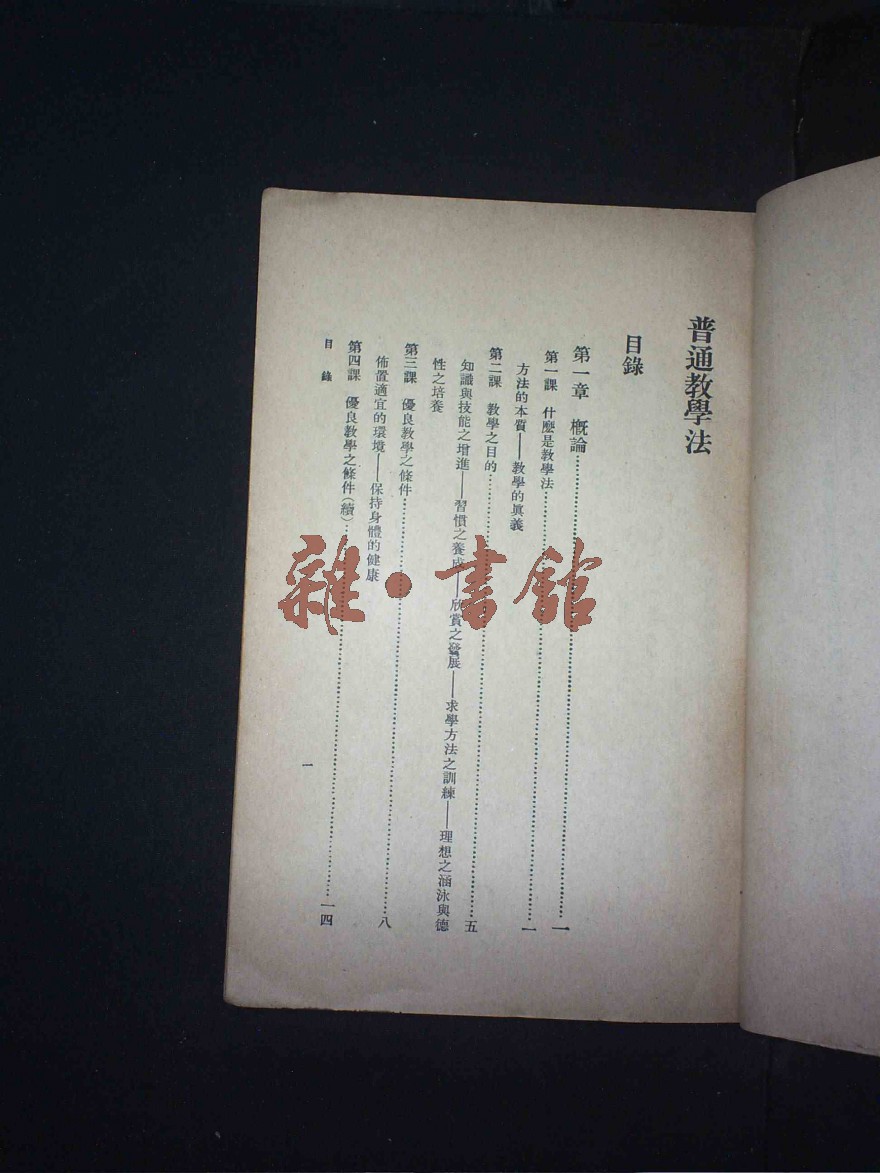 普通教學法
目錄
第一章　概論……一
第一課　什麽是教學法……一
方法的本質——教學的眞義
第二課　教學之目的……五
知識與技能之增進——習慣之養成——欣賞之發展——求學方法之訓練——理想之涵泳與德
性之培養
第三課　優良教學之條件……八
佈置適宜的環境——保持身體的健康
第四課　優良教學之條件（續）……一四
目錄
一
雜·書館